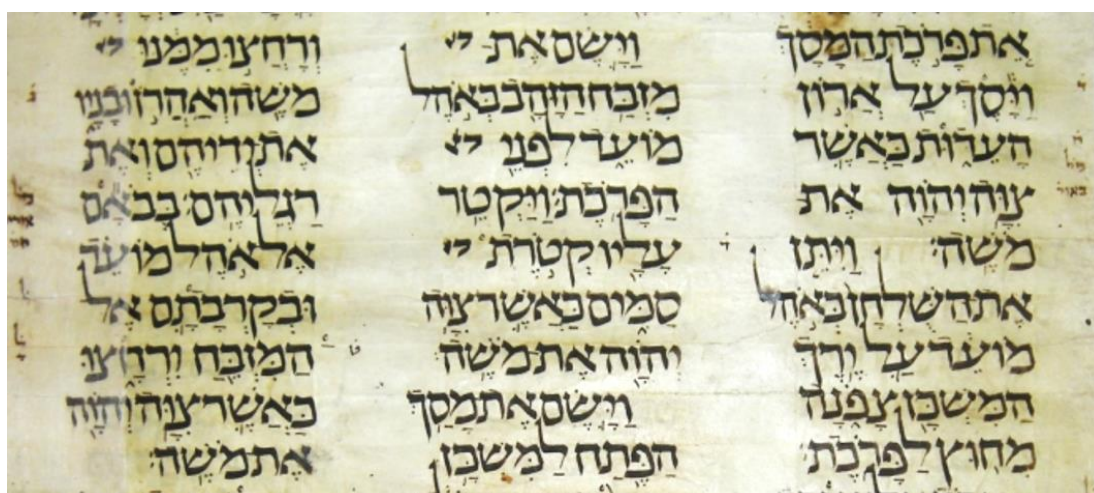 אֵת פָּרֹכֶת הַמָּסָךְ
וַיָּסֶךְ עַל אֲרוֹן
הָעֵדוּת כַּאֲשֶׁר
צִוָּה יְהוָה אֶת
מֹשֶׁה׃ וַיִּתֵּן
אֶת הַשֻּׁלְחָן בְּאֹהֶל
מוֹעֵד עַל יֶרֶךְ
הַמִּשְׁכָּן צָפֹנָה
מִחוּץ לַפָּרֹכֶת׃
וַיָּשֶׂם אֶת
מִזְבַּח הַזָּהָב בְּאֹהֶל
מוֹעֵד לִפְנֵי
הַפָּרֹכֶת׃ וַיַּקְטֵר
עָלָיו קְטֹרֶת
סַמִּים כַּאֲשֶׁר צִוָּה
יְהוָה אֶת מֹשֶׁה׃
וַיָּשֶׂם אֶת מָסַךְ
הַפֶּתַח לַמִּשְׁכָּן׃
וְרָחֲצוּ מִמֶּנּוּ
מֹשֶׁה וְאַהֲרֹן וּבָנָיו
אֶת יְדֵיהֶם וְאֶת
רַגְלֵיהֶם׃ בְּבֹאָם
אֶל אֹהֶל מוֹעֵד
וּבְקָרְבָתָם אֶל
הַמִּזְבֵּחַ יִרְחָצוּ
כַּאֲשֶׁר צִוָּה יְהוָה
אֶת מֹשֶׁה׃